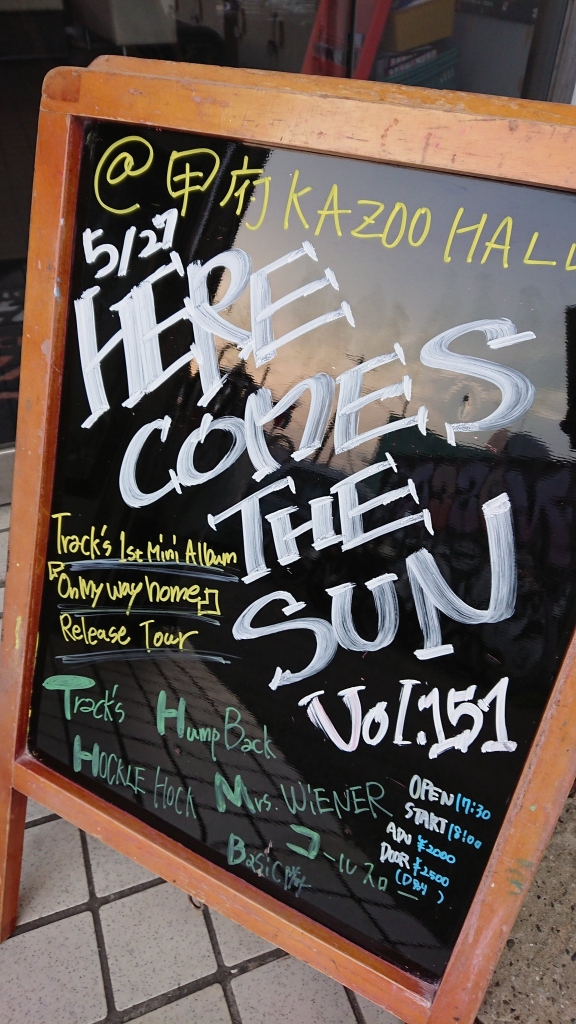 @甲府 KAZOO HALL
5/27
HERE
COMES
THE
SUN
Vol.151
Track's 1st Mini Album
『On My way home』
Release Tour
Track's Hump Back
HOCKLE HOCK Mrs. WiENER
コールスロー
OPEN 17:30
START 18:00
ADV ¥2000
DOOR ¥2500
(D別)